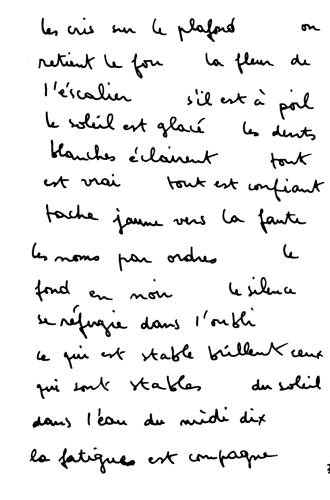 les cris sur le plafond on
retient le fou la fleur de
l'éscalier s'il est à poil
le soleil est glacé les dents
blanches éclairent tout
est vrai tout est confiant
tache jaune vers la faute
les noms par ordres le
fond en noir le silence
se réfugie dans l'oubli
ce qui est stable brillent ceux
qui sont stables du soleil
dans l'eau du midi dix
la fatigues est compagne